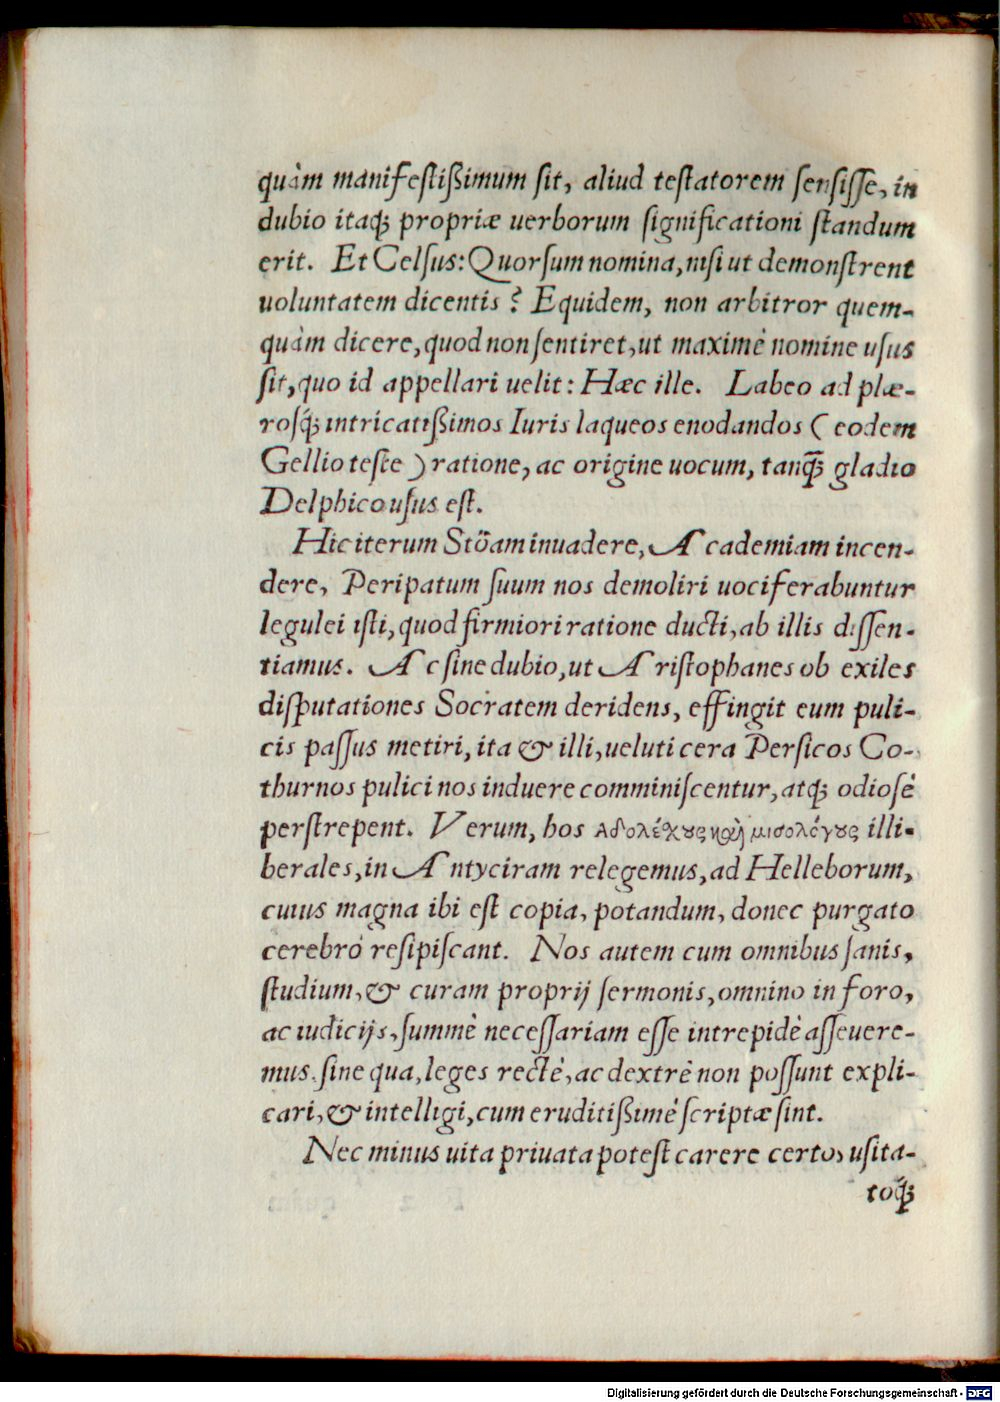 quàm manifestißimum sit, aliud testatorem sensisse, in
dubio itaq́; propriæ uerborum significationi standum
erit. Et Celsus: Quorsum nomina, nisi ut demonstrent
uoluntatem dicentis? Equidem, non arbitror quem-
quàm dicere, quod non sentiret, ut maximè nomine usus
sit, quo id appellari uelit: Hæc ille. Labeo ad plæ-
rosq́; intricatißimos Iuris laqueos enodandos (eodem
Gellio teste) ratione, ac origine uocum, tanq̃; gladio
Delphico usus est.
Hic iterum Stöam inuadere, Academiam incen-
dere, Peripatum suum nos demoliri uociferabuntur
legulei isti, quod firmiori ratione ducti, ab illis dissen-
tiamus. Ac sine dubio, ut Aristophanes ob exiles
disputationes Socratem deridens, effingit eum puli-
cis passus metiri, ita & illi, ueluti cera Persicos Co-
thurnos pulici nos induere comminiscentur, atq́; odiosè
perstrepent. Verum, hos ἀδολέχους καὶ μισολόγους illi-
berales, in Antyciram relegemus, ad Helleborum,
cuius magna ibi est copia, potandum, donec purgato
cerebro resipiscant. Nos autem cum omnibus sanis,
studium, & curam proprij sermonis, omnino in foro,
ac iudicijs, summè necessariam esse intrepidè asseuere-
mus, sine qua, leges rectè, ac dextrè non possunt expli-
cari, & intelligi, cum eruditißimè scriptæ sint.
Nec minus uita priuata potest carere certo, usita-
toq́;
Digitalisierung gefördert durch die Deutsche Forschungsgemeinschaft - DFG